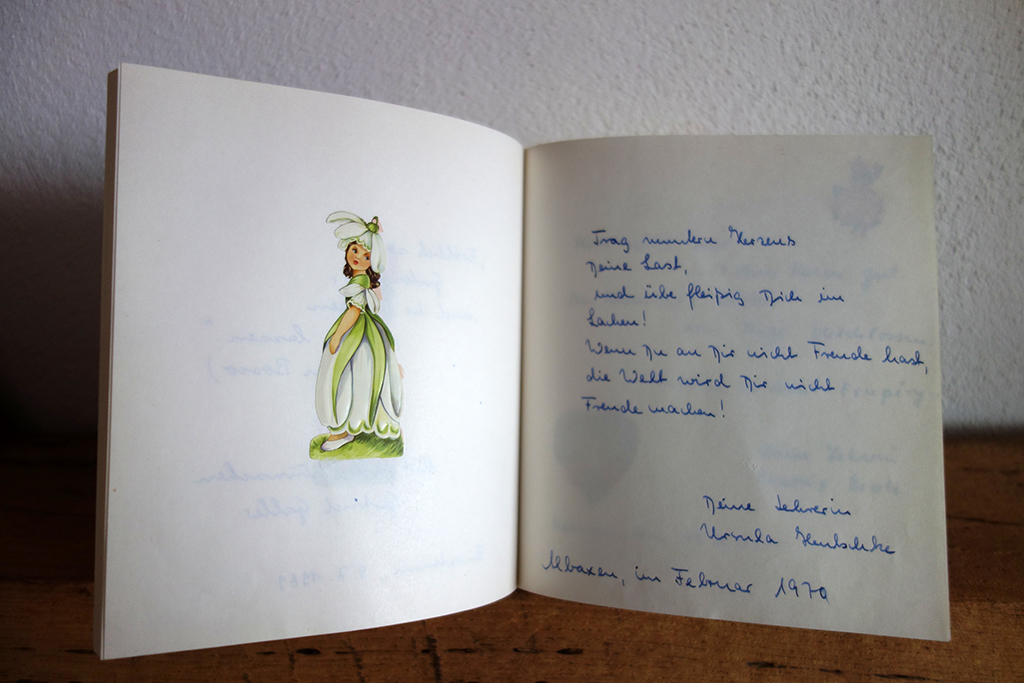 Trag muntern Herzens
Deine Last,
und übe fleißig Dich im
Lachen!
Wenn Du an Dir nicht Freude hast,
die Welt wird Dir nicht
Freude machen!
Deine Lehrerin
Ursula Hentschke
Albaxen, im Februar 1970